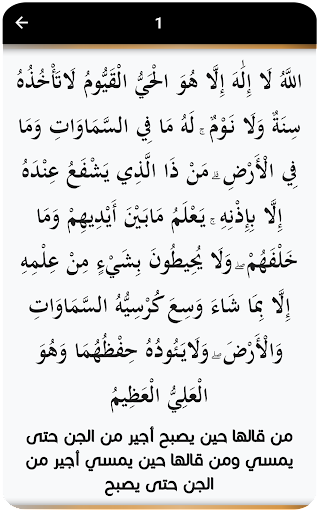 1
اللَّهُ لَا إِلَٰهَ إِلَّا هُوَ الْحَيُّ الْقَيُّومُ لَاتَأْخُذُهُ
سِنَةٌ وَلَا نَوْمٌ ۚ لَهُ مَا فِي السَّمَاوَاتِ وَمَا
فِي الْأَرْضِ ۗ مَنْ ذَا الَّذِي يَشْفَعُ عِنْدَهُ
إِلَّا بِإِذْنِهِ ۚ يَعْلَمُ مَابَيْنَ أَيْدِيهِمْ وَمَا
خَلْفَهُمْ ۖ وَلَا يُحِيطُونَ بِشَيْءٍ مِنْ عِلْمِهِ
إِلَّا بِمَا شَاءَ وَسِعَ كُرْسِيُّهُ السَّمَاوَاتِ
وَالْأَرْضَ ۖ وَلَايَئُودُهُ حِفْظُهُمَا وَهُوَ
الْعَلِيُّ الْعَظِيمُ
من قالها حين يصبح أجير من الجن حتى
يمسي ومن قالها حين يمسي أجير من
الجن حتى يصبح